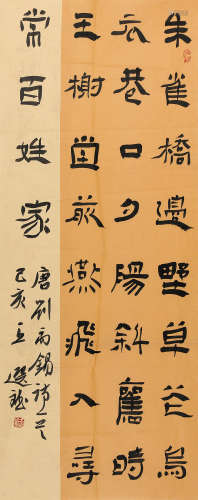 朱雀橋邊野草花烏
衣巷口夕陽斜舊時
王榭堂前燕飛入尋
常百姓家
唐刘禹锡詩一首
己亥